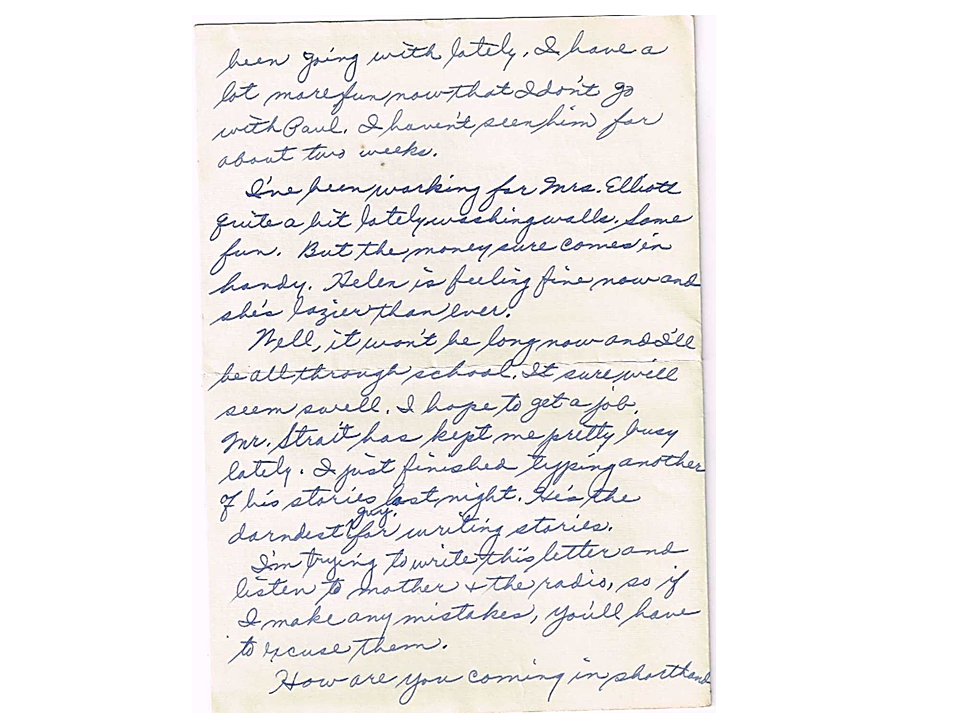 been going with lately. I have a
lot more fun now that I don't go
with Paul. I haven't seen him for
about two weeks.
I've been working for Mrs. Elliott
quite a bit lately washing walls. Some
fun. But the money sure comes in
handy. Helen is feeling fine now and
she's lazier than ever.
Well, it won't be long now and I'll
be all through school. It sure will
seem swell. I hope to get a job.
Mr. Strait has kept me pretty busy
lately. I just finished typing another
of his stories last night. He's the
darndest guy. for writing stories.
I'm trying to write this letter and
listen to mother + the radio, so if
I make any mistakes, you'll have
to excuse them.
How are you coming in shorthand